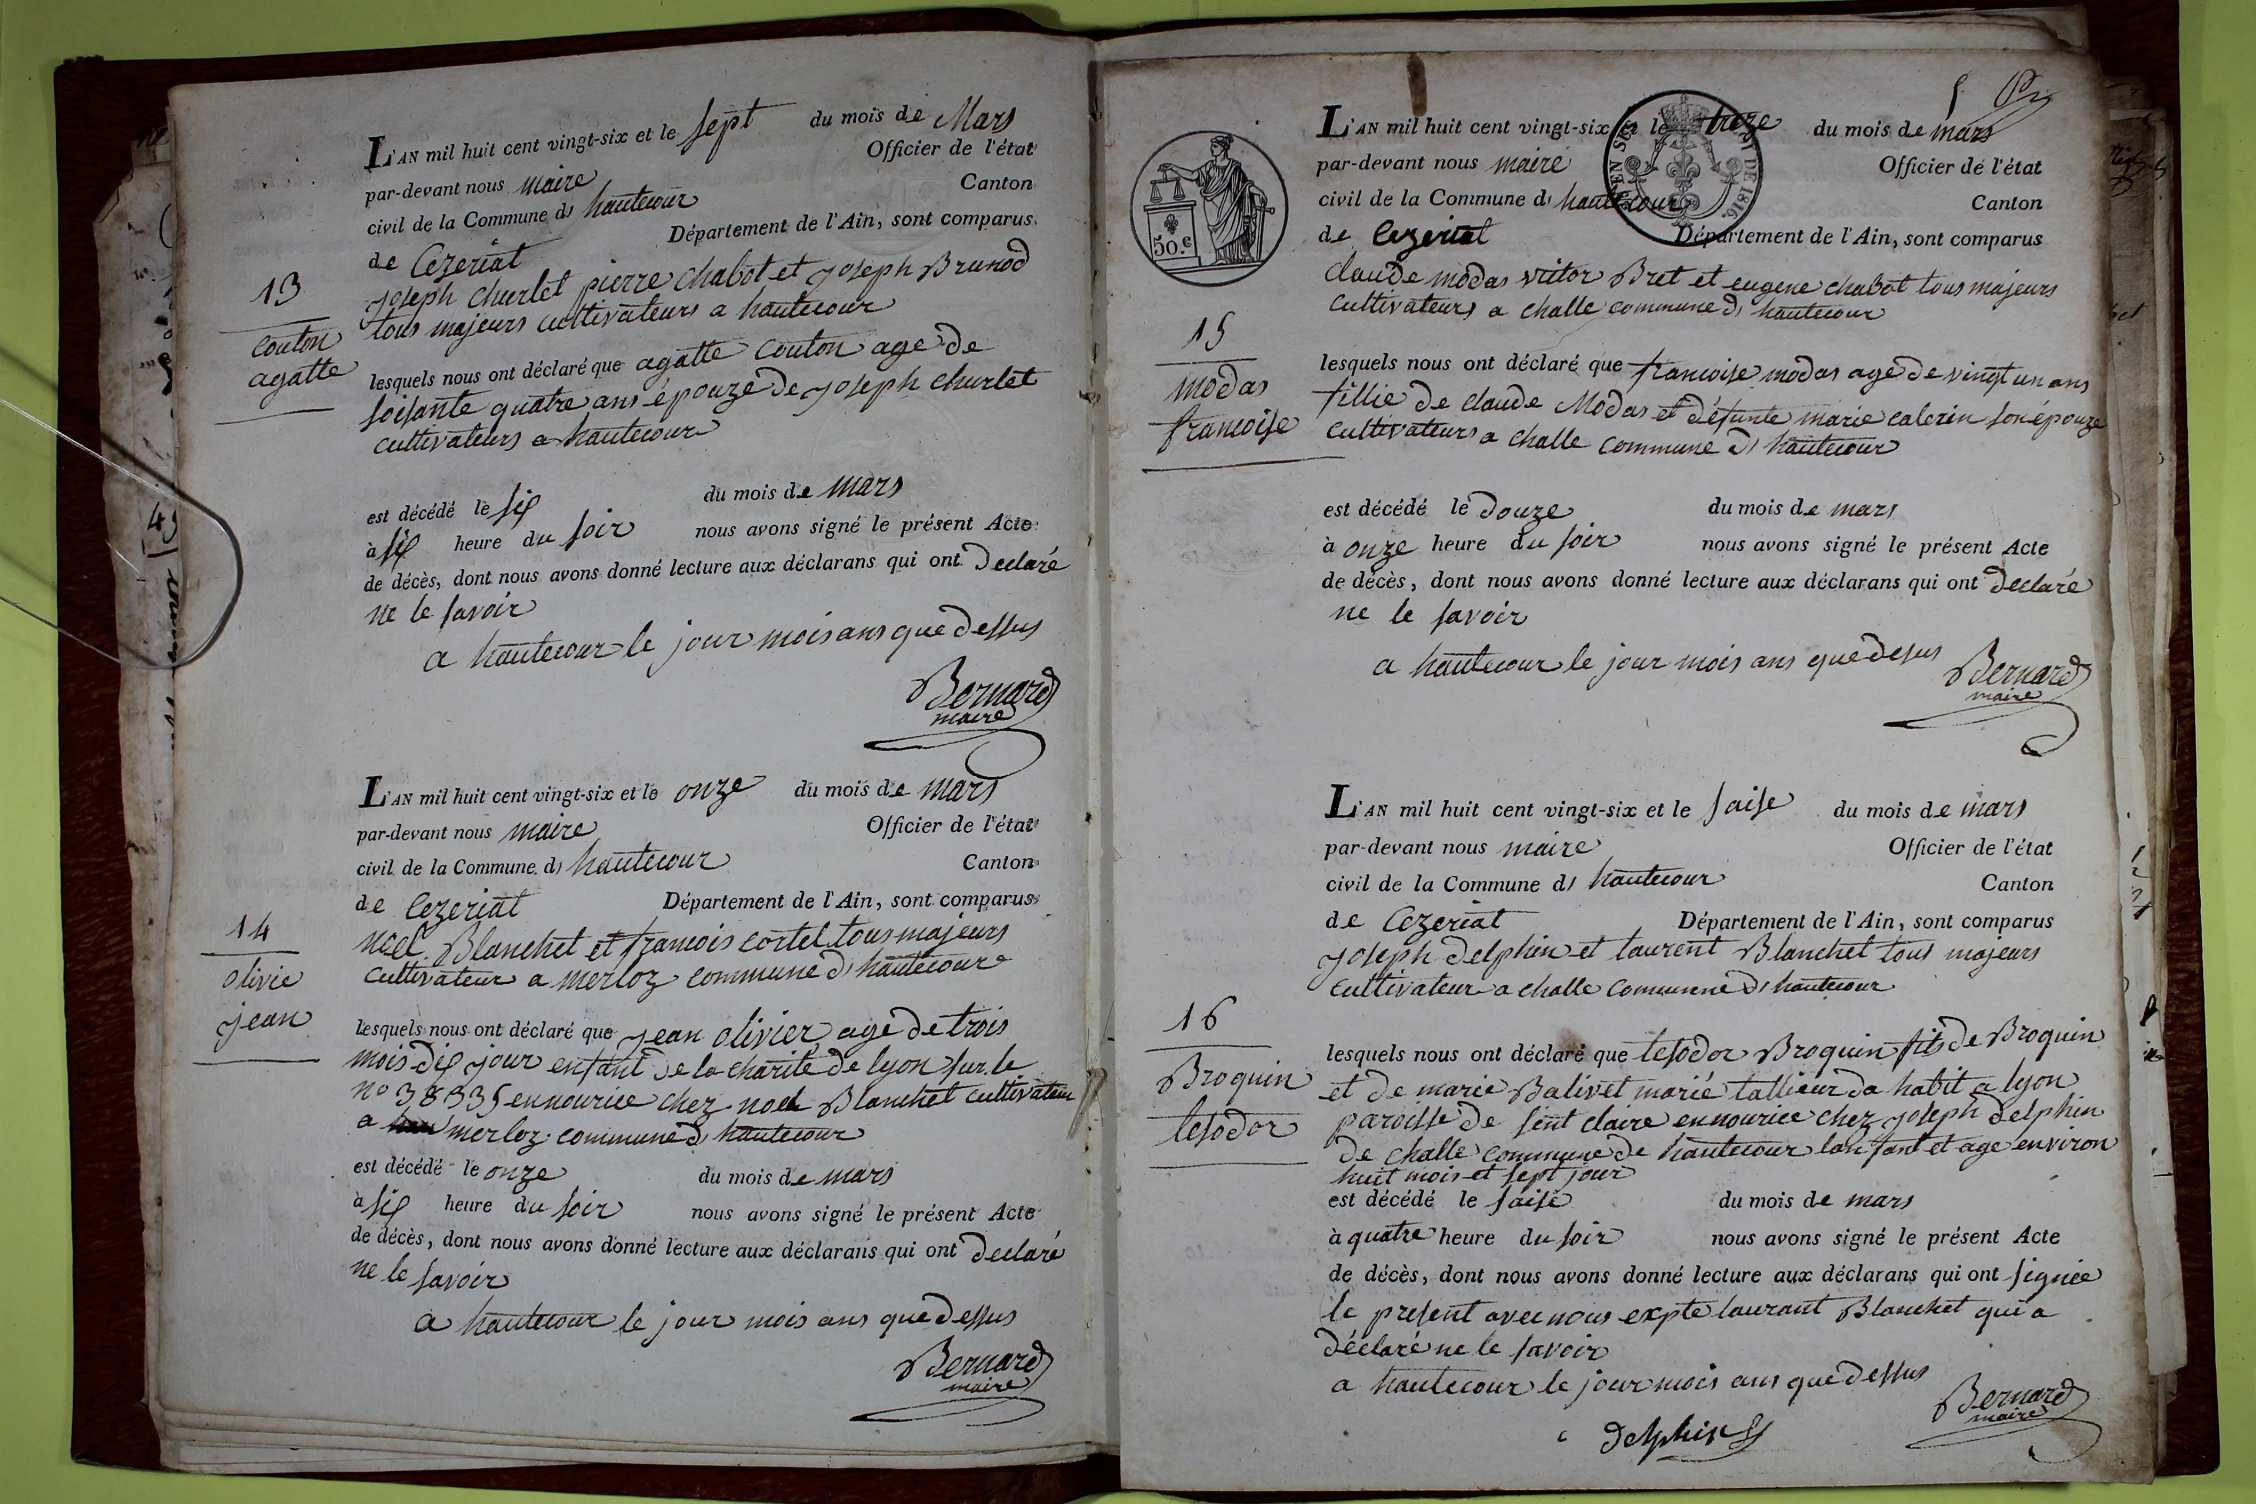 L'AN mil huit cent vingt-six et le sept du mois de Mars
par-devant nous maire Officier de l'état
civil de la Commune d hautecour Canton
de Cezeriat Département de l'Ain, sont comparus
joseph churlet pierre chabot et joseph Brunod
tous majeurs cultivateurs a hautecour
13
couton
agatte
lesquels nous ont déclaré que agatte couton age de
soisante quatre ans épouze de joseph churlet
cultivateurs a hautecour
est décédé le six du mois de mars
à six heure du soir nous avons signé le présent Acte
de décès, dont nous avons donné lecture aux déclarans qui ont declaré
ne le savoir
a hautecour le jour mois ans que dessus
Bernard
maire
L'AN mil huit cent vingt-six et le onze du mois de mars
par-devant nous maire Officier de l'état
civil de la Commune d hautecour Canton
de Cezeriat Département de l'Ain, sont comparus
noel Blanchet et francois cortel tous majeurs
cultivateur a merloz commune d hautecour
14
olivie
jean
lesquels nous ont déclaré que jean olivier age de trois
mois dix jour enfant de la charité de lyon sur le
no 38335 ennourice chez noel Blanchet cultivateur
a merloz commune d hautecour
est décédé le onze du mois de mars
à six heure du soir nous avons signé le présent Acte
de décès, dont nous avons donné lecture aux déclarans qui ont declaré
ne le savoir
a hautecour le jour mois ans que dessus
Bernard
maire
L'AN mil huit cent vingt-six et le treze du mois de mars
par-devant nous maire Officier de l'état
civil de la Commune d hautecour Canton
de Cezeriat Département de l'Ain, sont comparus
50.c
DE 1816.
claude modas victor Bret et eugene chabot tous majeurs
cultivateurs a challe commune d hautecour
15
modas
francoise
lesquels nous ont déclaré que francoise modas age de vingt un ans
fillie de claude Modas et défunte marie calerin son épouze
cultivateurs a challe commune d hautecour
est décédé le douze du mois de mars
à onze heure du soir nous avons signé le présent Acte
de décès, dont nous avons donné lecture aux déclarans qui ont declaré
ne le savoir
a hautecour le jour mois ans que desus
Bernard
maire
L'AN mil huit cent vingt-six et le saise du mois de mars
par-devant nous maire Officier de l'état
civil de la Commune d hautecour Canton
de Cezeriat Département de l'Ain, sont comparus
joseph delphin et laurent Blanchet tous majeurs
cultivateur a challe commune d hautecour
16
Broquin
tesodor
lesquels nous ont déclaré que tesodor Broquin fils de Broquin
et de marie Balivet marié tallieur da habit a lyon
paroisse de sent claire ennourice chez joseph delphin
de challe commune de hautecour lanfant et age environ
huit mois et sept jour
est décédé le saise du mois de mars
à quatre heure du soir nous avons signé le présent Acte
de décès, dont nous avons donné lecture aux déclarans qui ont signée
le present avec nous expte laurant Blanchet qui a
déclaré ne le savoir
a hautecour le jour mois ans que dessus
Bernard
maire
delphin